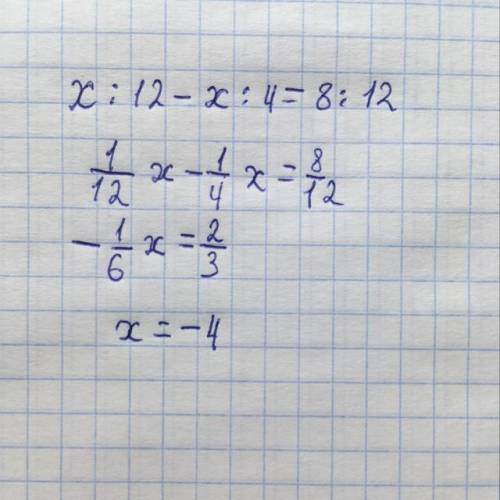 x : 12 - x : 4 = 8 : 12
1/12 x - 1/4 x = 8/12
- 1/6 x = 2/3
x = - 4